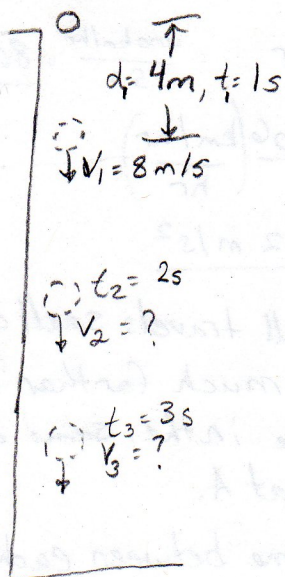 d₁ = 4m, t₁ = 1s
V₁ = 8 m/s
t₂ = 2s
V₂ = ?
t₃ = 3s
V₃ = ?